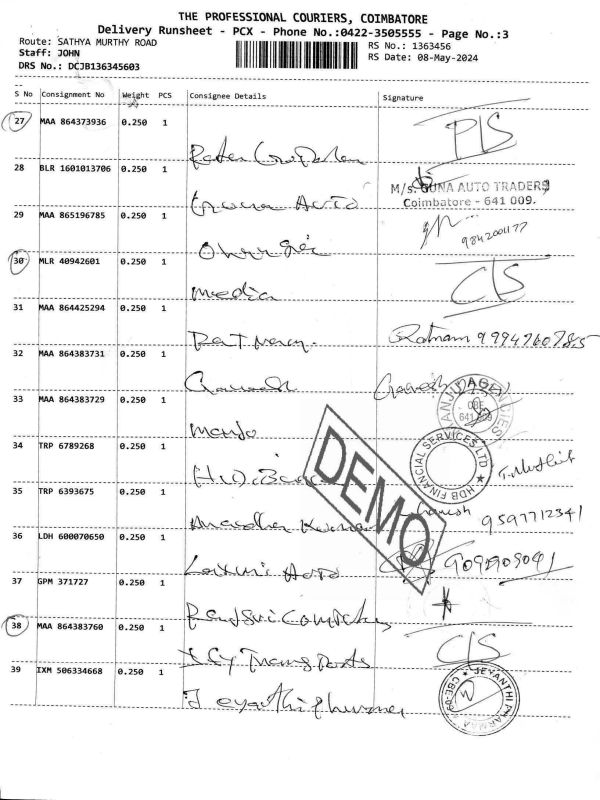 THE PROFESSIONAL COURIERS, COIMBATORE
Delivery Runsheet - PCX - Phone No.:0422-3505555 - Page No.:3
Route: SATHYA MURTHY ROAD
RS No.: 1363456
Staff: JOHN
RS Date: 08-May-2024
DRS No.: DCJB136345603
S No Consignment No Weight PCS Consignee Details Signature
27 MAA 864373936 0.250 1
28 BLR 1601013706 0.250 1
Guna Auto
M/s. GUNA AUTO TRADERS
Coimbatore - 641 009.
29 MAA 865196785 0.250 1
9842001177
30 MLR 40942601 0.250 1
media
C/S
31 MAA 864425294 0.250 1
Ratnam
32 MAA 864383731 0.250 1
Ganesh Ganesh
33 MAA 864383729 0.250 1
Manju
34 TRP 6789268 0.250 1
HDB FINANCIAL SERVICES LTD
35 TRP 6393675 0.250 1
Anuradha
9597712341
DEMO
36 LDH 600070650 0.250 1
Laxmi Auto
37 GPM 371727 0.250 1
38 MAA 864383760 0.250 1
Transports
C/S
39 IXM 506334668 0.250 1
JEYANTHI PHARMA
CBE-09